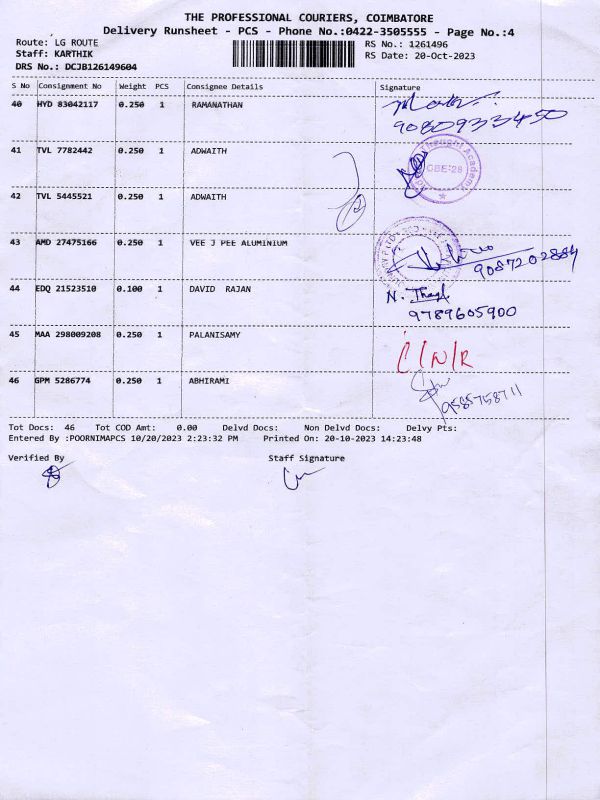 THE PROFESSIONAL COURIERS, COIMBATORE
Delivery Runsheet - PCS - Phone No.:0422-3505555 - Page No.:4
Route: LG ROUTE RS No.: 1261496
Staff: KARTHIK RS Date: 20-Oct-2023
DRS No.: DCJB126149604
S No Consignment No Weight PCS Consignee Details Signature
40 HYD 83042117 0.250 1 RAMANATHAN
9080933450
41 TVL 7782442 0.250 1 ADWAITH
Thought Academy
CBE-28
42 TVL 5445521 0.250 1 ADWAITH
43 AMD 27475166 0.250 1 VEE J PEE ALUMINIUM
9087202884
44 EDQ 21523510 0.100 1 DAVID RAJAN
9789605900
45 MAA 298009208 0.250 1 PALANISAMY
46 GPM 5286774 0.250 1 ABHIRAMI
9585758711
Tot Docs: 46 Tot COD Amt: 0.00 Delvd Docs: Non Delvd Docs: Delvy Pts:
Entered By :POORNIMAPCS 10/20/2023 2:23:32 PM Printed On: 20-10-2023 14:23:48
Verified By Staff Signature